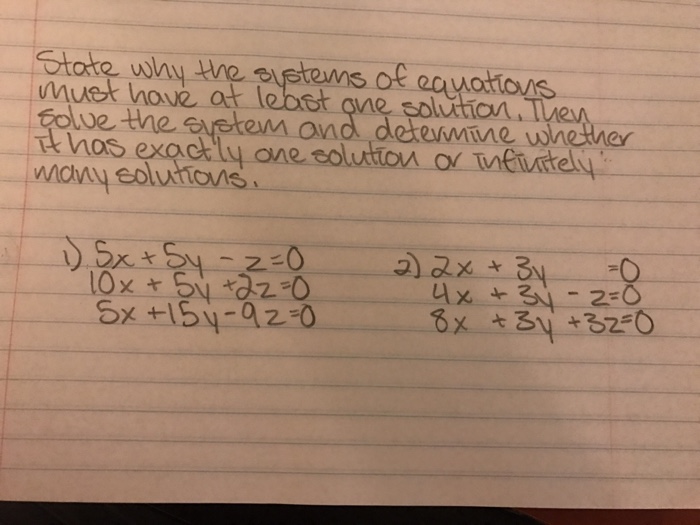 State why the systems of equations
must have at least one solution. Then
solve the system and determine whether
it has exactly one solution or infinitely
many solutions.
1) 5x + 5y - z=0 2) 2x + 3y =0
10x + 5y +2z=0 4x + 3y - z=0
5x +15y-9z=0 8x + 3y +3z=0